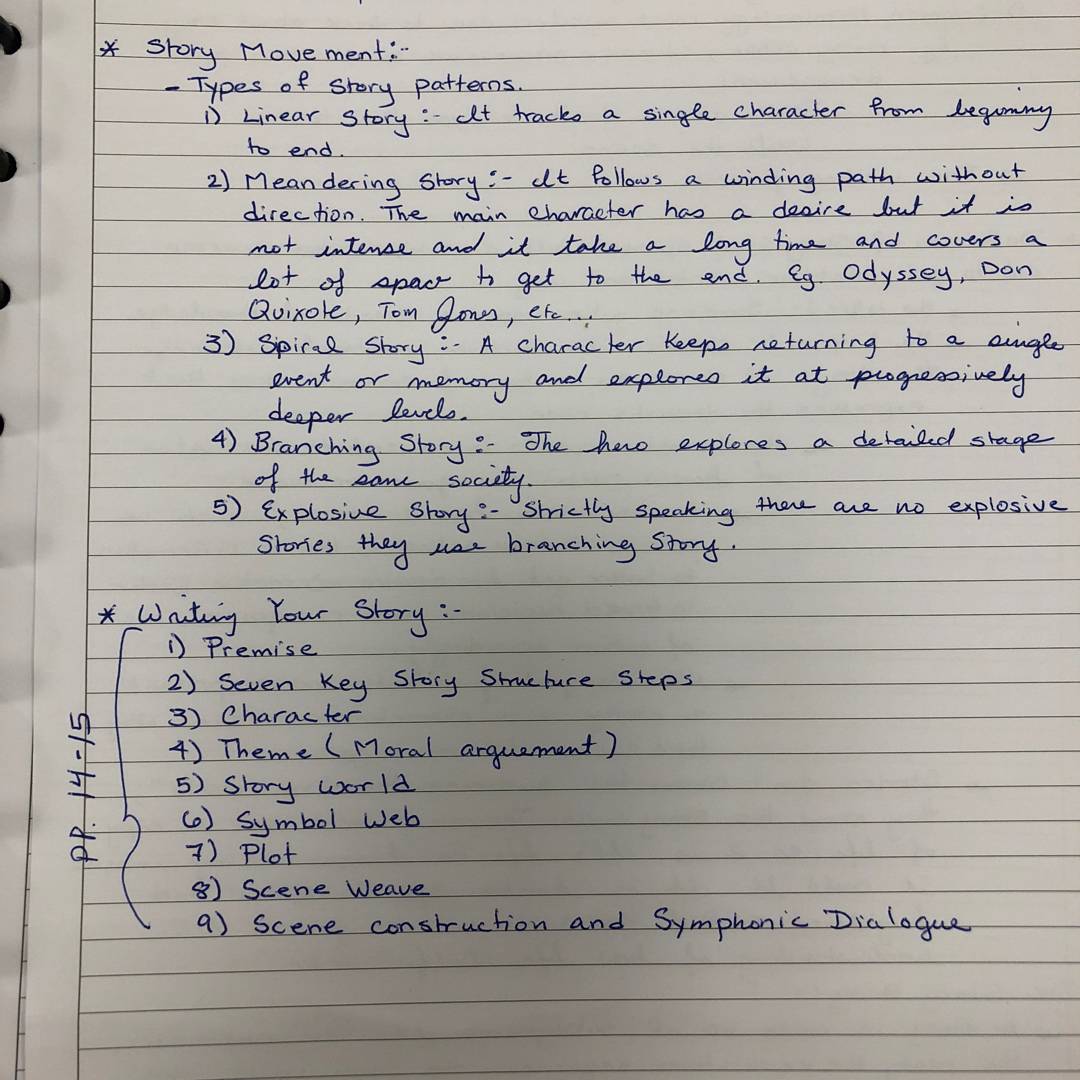 * Story Movement:-
- Types of Story patterns.
1) Linear Story :- It tracks a single character from beginning
to end.
2) Meandering Story :- It follows a winding path without
direction. The main character has a desire but it is
not intense and it take a long time and covers a
lot of space to get to the end. Eg. Odyssey, Don
Quixote, Tom Jones, etc...
3) Spiral Story :- A character keeps returning to a single
event or memory and explores it at progressively
deeper levels.
4) Branching Story :- The hero explores a detailed stage
of the same society.
5) Explosive Story :- Strictly speaking there are no explosive
Stories they use branching Story.
* Writing Your Story :-
1) Premise
2) Seven Key Story Structure Steps
3) Character
4) Theme (Moral arguement)
5) Story world
6) Symbol Web
7) Plot
8) Scene Weave
9) Scene construction and Symphonic Dialogue
PP. 14-15